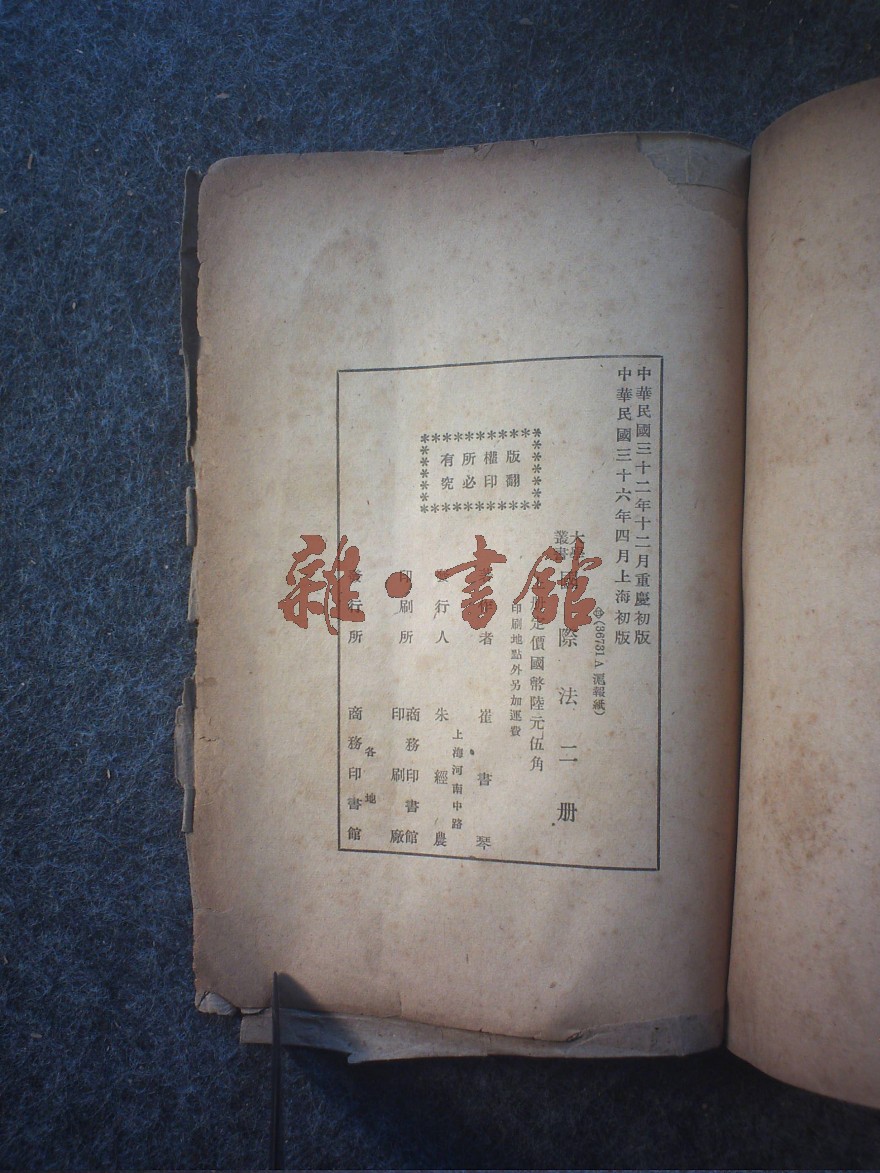 中華民國三十二年十二月重慶初版
中華民國三十六年四月上海初版
(36731 A 滬報紙)
大學叢書
國際法二册
上册定價國幣陸元伍角
印刷地點外另加運費
版權所有
翻印必究
著作者 崔書琴
上海河南中路
發行人 朱經農
印刷所 商務印書館印刷廠
各地
發行所 商務印書館
雜·書館